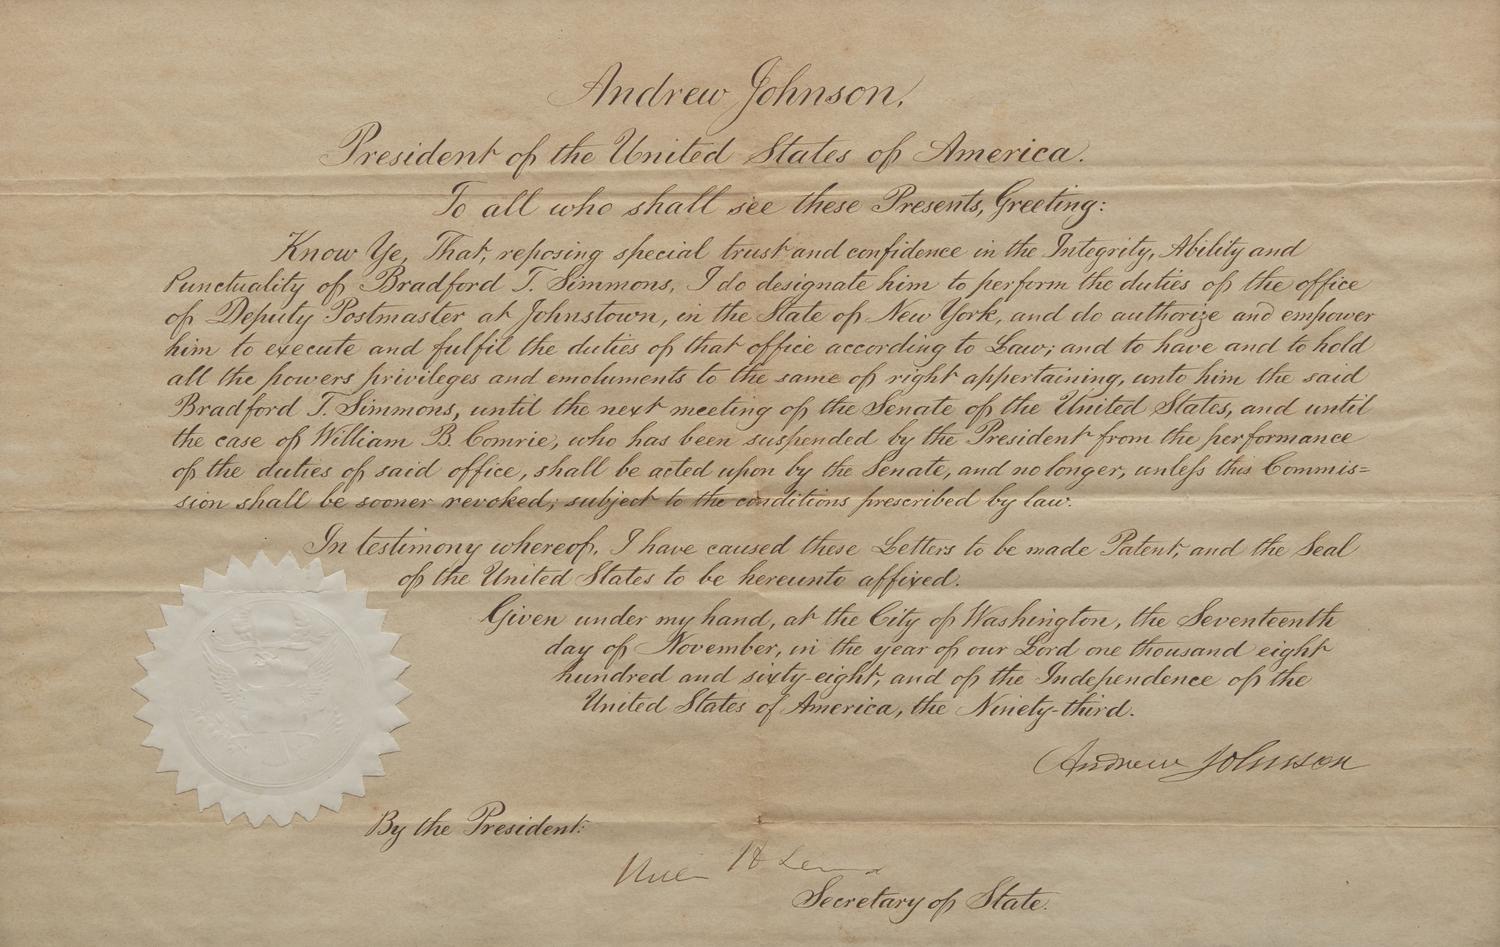 Andrew Johnson,
President of the United States of America.
To all who shall see these Presents, Greeting:
Know Ye, That, reposing special trust and confidence in the Integrity, Ability and
Punctuality of Bradford T. Simmons, I do designate him to perform the duties of the office
of Deputy Postmaster at Johnstown, in the State of New York, and do authorize and empower
him to execute and fulfil the duties of that office according to Law; and to have and to hold
all the powers privileges and emoluments to the same of right appertaining, unto him the said
Bradford T. Simmons, until the next meeting of the Senate of the United States, and until
the case of William B. Comrie, who has been suspended by the President from the performance
of the duties of said office, shall be acted upon by the Senate, and no longer, unless this Commis=
sion shall be sooner revoked; subject to the conditions prescribed by law.
In testimony whereof, I have caused these Letters to be made Patent, and the Seal
of the United States to be hereunto affixed.
Given under my hand, at the City of Washington, the Seventeenth
day of November, in the year of our Lord one thousand eight
hundred and sixty-eight, and of the Independence of the
United States of America, the Ninety-third.
Andrew Johnson
By the President:
Secretary of State.